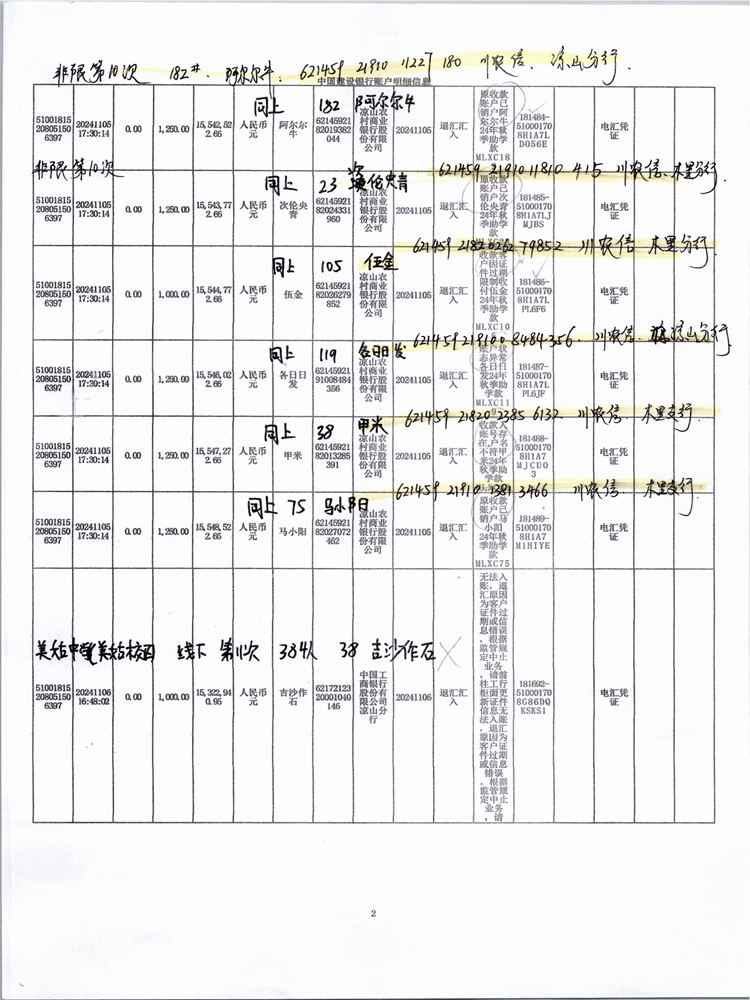 非限第10次 182#. 阿尔尔牛. 621459 21910 11227 180 川农信. 凉山分行.
中国建设银行账户明细信息
同上 182 阿尔尔牛
51001815208051506397 20241105 17:30:14 0.00 1,250.00 15,542,522.66 人民币元 阿尔尔牛 6214592182019382044 凉山农村商业银行股份有限公司 20241105 退汇汇入 原收款账户已销户阿尔尔牛24年秋季助学款MLXC18 181484-510001708H1A7LD056E 电汇凭证
非限第10次 621459 21910 11810 415 川农信. 木里分行.
同上 23 次伦央青
51001815208051506397 20241105 17:30:14 0.00 1,250.00 15,543,772.66 人民币元 次伦央青 6214592182024331960 凉山农村商业银行股份有限公司 20241105 退汇汇入 原收款账户已销户次伦央青24年秋季助学款 181485-510001708H1A7LJMJBS 电汇凭证
621459 21826262 79852 川农信 木里分行.
同上 105 伍金
51001815208051506397 20241105 17:30:14 0.00 1,000.00 15,544,772.66 人民币元 伍金 6214592182026279852 凉山农村商业银行股份有限公司 20241105 退汇汇入 收款客户因证件过期限制收付伍金24年秋季助学款MLXC10 181486-510001708H1A7LPL6F6 电汇凭证
621459 219100 8484356 川农信. 凉山分行
同上 119 各日日发
51001815208051506397 20241105 17:30:14 0.00 1,250.00 15,546,022.66 人民币元 各日日发 6214592191008484356 凉山农村商业银行股份有限公司 20241105 退汇汇入 账户状态异常各日日发24年秋季助学款MLXC11 181487-510001708H1A7LPL6JF 电汇凭证
621459 21820 2385 6132 川农信 木里支行.
同上 38 甲米
51001815208051506397 20241105 17:30:14 0.00 1,250.00 15,547,272.66 人民币元 甲米 6214592182013285391 凉山农村商业银行股份有限公司 20241105 退汇汇入 收款人账号存在,户名不符甲米24年秋季助学款 181488-510001708H1A7MJCUO3 电汇凭证
621459 21910 1381 3466 川农信 木里支行.
同上 75 马小阳
51001815208051506397 20241105 17:30:14 0.00 1,250.00 15,548,522.66 人民币元 马小阳 6214592182027072462 凉山农村商业银行股份有限公司 20241105 退汇汇入 原收款账户已销户马小阳24年秋季助学款MLXC75 181489-510001708H1A7M1HIYE 电汇凭证
美姑中 美姑校园 线下 第11次 384人 38 吉沙作石
51001815208051506397 20241106 16:48:02 0.00 1,000.00 15,322,940.95 人民币元 吉沙作石 6217212320001040146 中国工商银行股份有限公司凉山分行 20241106 退汇汇入 无法入账,退汇原因为客户证件过期或信息错误,根据监管规定中止业务,请前往工行柜面更新证件信息无法入账,退汇原因为客户证件过期或信息错误,根据监管规定中止业务,请 181692-510001708G86DQKSKS1 电汇凭证
2